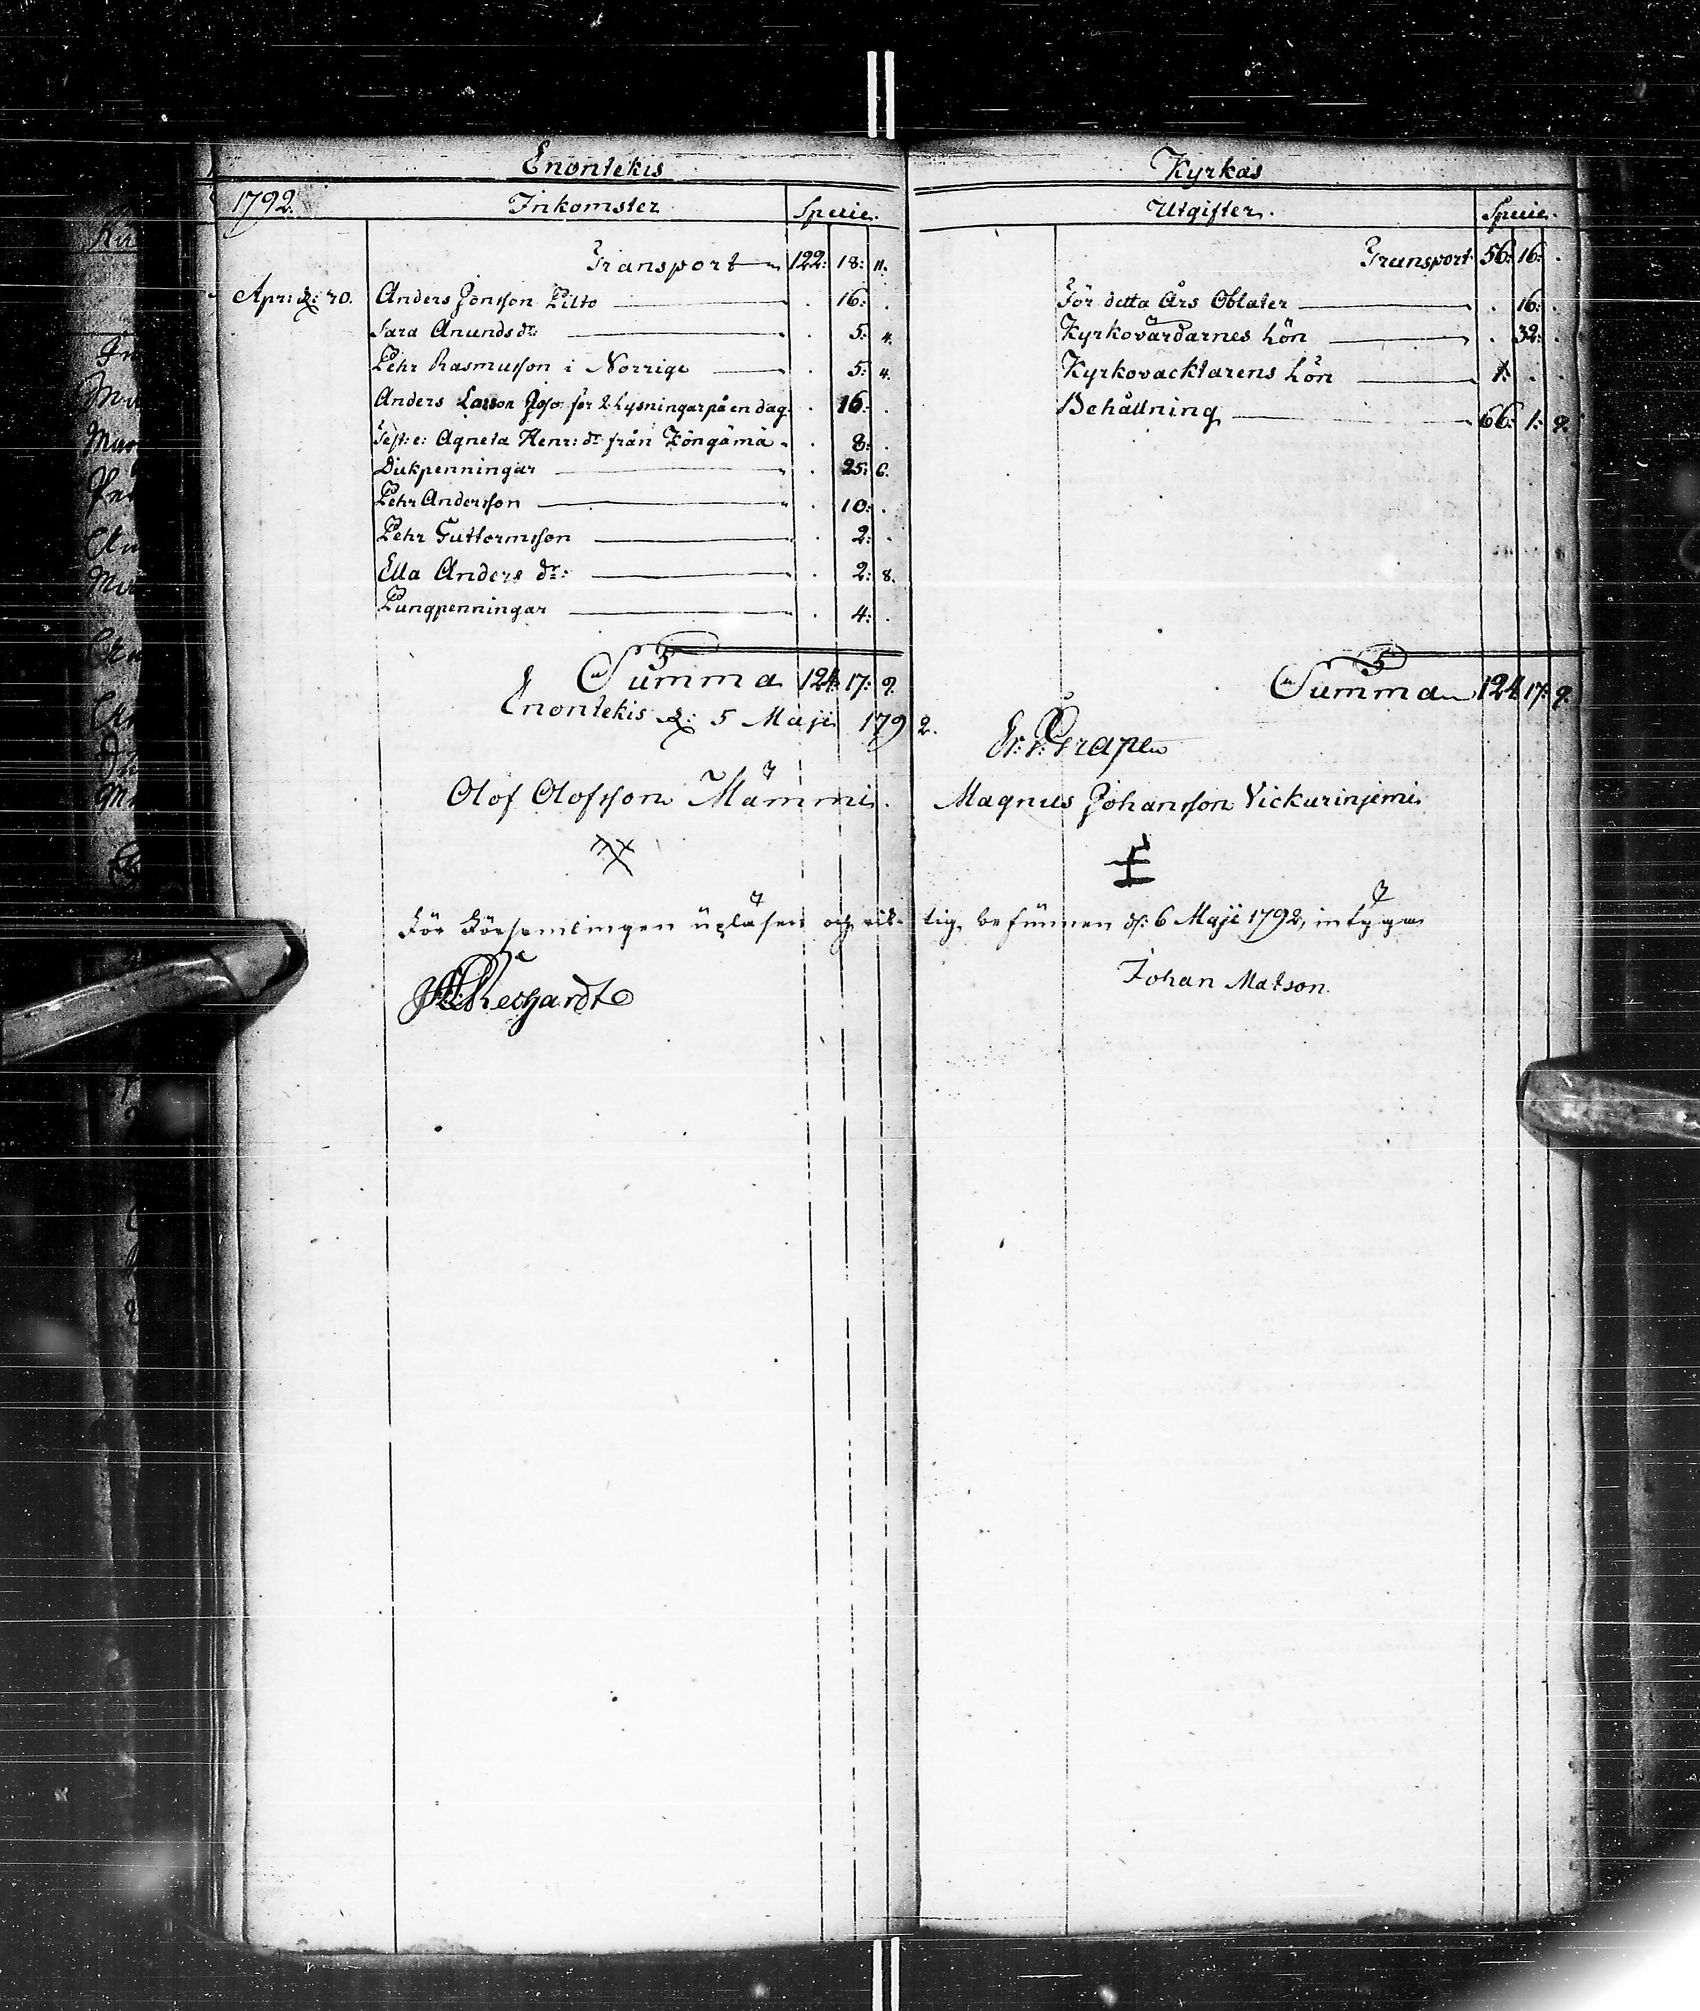 Enontekis
1792. Inkomster Specie.
Transport 122: 18: 11.
Apr: d: 20. Anders Jonsson Pilto . 16: .
Sara Anunds dr . 5: 4.
Pehr Rasmusson i Norrige . 5: 4.
Anders Larsson Joso för 2 Lysningar på en dag . 16: .
Test: e: Agneta Henr: dr från Köngämä . 8: .
Diskpenningar . 25: 6.
Pehr Andersson . 10: .
Pehr Guttormsson . 2: .
Ella Anders dr: . 2: 8.
Pungpenningar . 4: .
Summa 124: 17: 9.
Enontekis d: 5 Maji 1792.
Olof Olofsson Mämmi.
Kyrkas
Utgifter. Specie.
Transport 56: 16: .
För detta Års Oblater . 16: .
Kyrkovärdarnes Lön . 32: .
Kyrkovacktarens Lön 1: . .
Behållning 66: 1: 9.
Summa 124 17: 9.
Er: J: Grape
Magnus Johansson Vickurinjemi
För Församlingen upläsen och riktig befunnen d: 6 Maji 1792, intyga
Johan Matson.